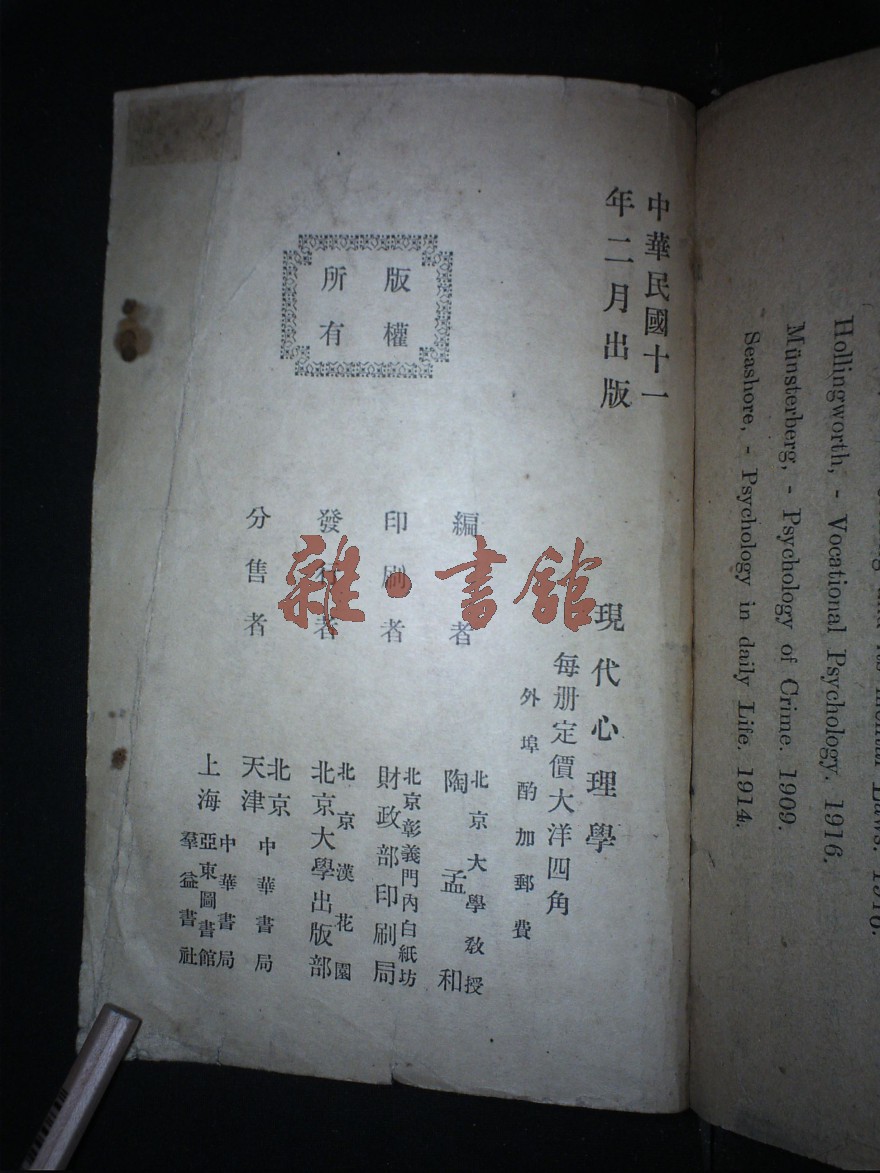 中華民國十一
年二月出版
版權
所有
現代心理學
每册定價大洋四角
外埠酌加郵費
編者
北京大學教授
陶孟和
印刷者
北京彰義門內白紙坊
財政部印刷局
發行者
北京漢花園
北京大學出版部
分售者
北京
天津
中華書局
上海
中華書局
亞東圖書館
羣益書社
雜·書館
and its mental Laws. 1916.
Hollingworth, - Vocational Psychology. 1916.
Münsterberg, - Psychology of Crime. 1909.
Seashore, - Psychology in daily Life. 1914.